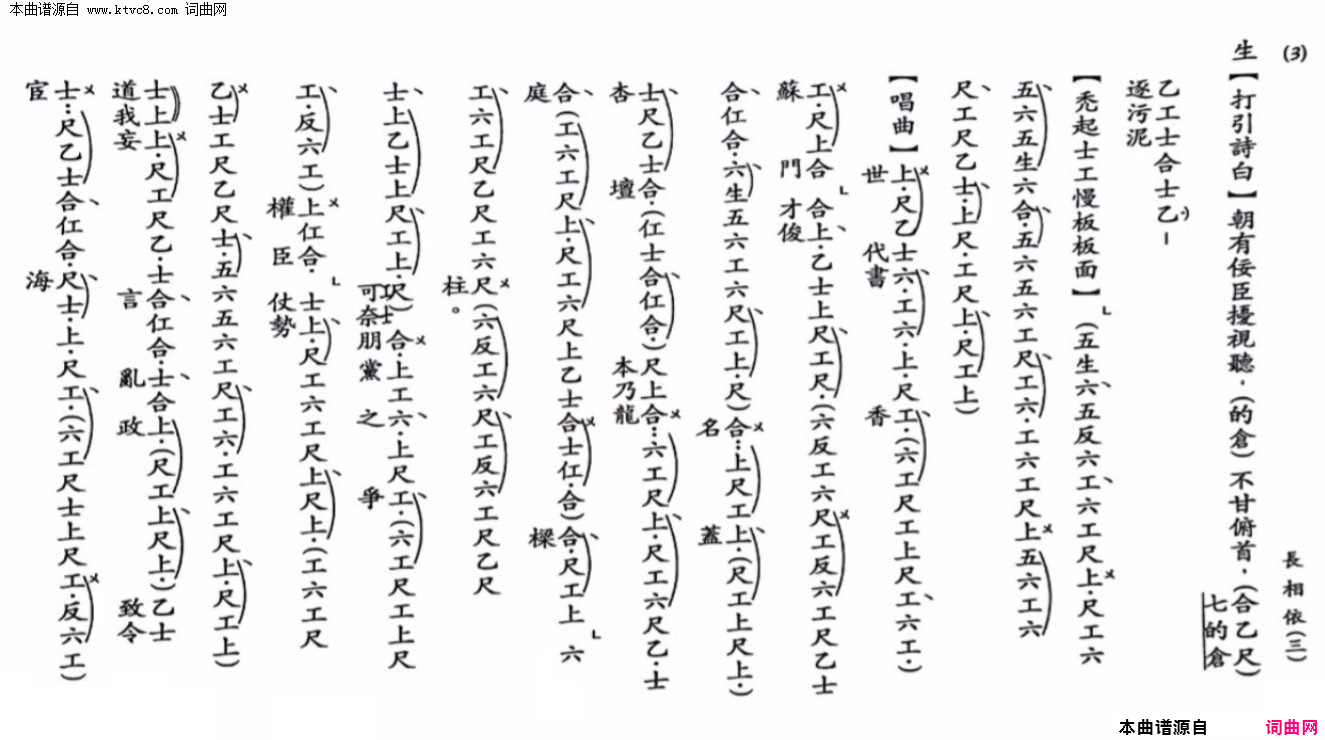 本曲谱源自 www.ktvc8.com 词曲网
(3)
長相依(三)
生【打引詩白】朝有佞臣擾視聽，(的倉)不甘俯首，(合乙尺)
七的倉
乙工士合士乙
逐污泥
【禿起士工慢板板面】(五生六五反六工六工尺上尺工六
五六五生六合五六五六工尺工六工六工尺上五六工六
尺工尺乙士上尺工尺上尺工上)
【唱曲】上尺乙士六工六上尺工(六工尺工上尺工六工)
世代書香
工尺上合合上乙士上尺工尺(六反工六尺工反六工尺乙士
蘇門才俊
合仜合六生五六工六尺工上尺)合上尺工上(尺工上尺上)
名蓋
士尺乙士合(仜士合仜合)尺上合六工尺上尺工六尺乙士
杏壇本乃龍
合(工六工尺上尺工六尺上乙士合士仜合)合尺工上六
庭樑
工六工尺乙尺工六尺(六反工六尺工反六工尺乙尺
柱。
士上乙士上尺工上尺)工士合上工六上尺工(六工尺工上尺
可奈朋黨之爭
工反六工)上仜合士上尺工六工尺上尺上(工六工尺
權臣仗勢
乙士工尺乙尺士五六五六工尺工六工六工尺上尺工上)
士上上尺工尺乙士合仜合士合上(尺工上尺上)乙士
道我妄言亂政致令
士尺乙士合仜合尺士上尺工(六工尺士上尺工反六工)
宦海
本曲谱源自 词曲网